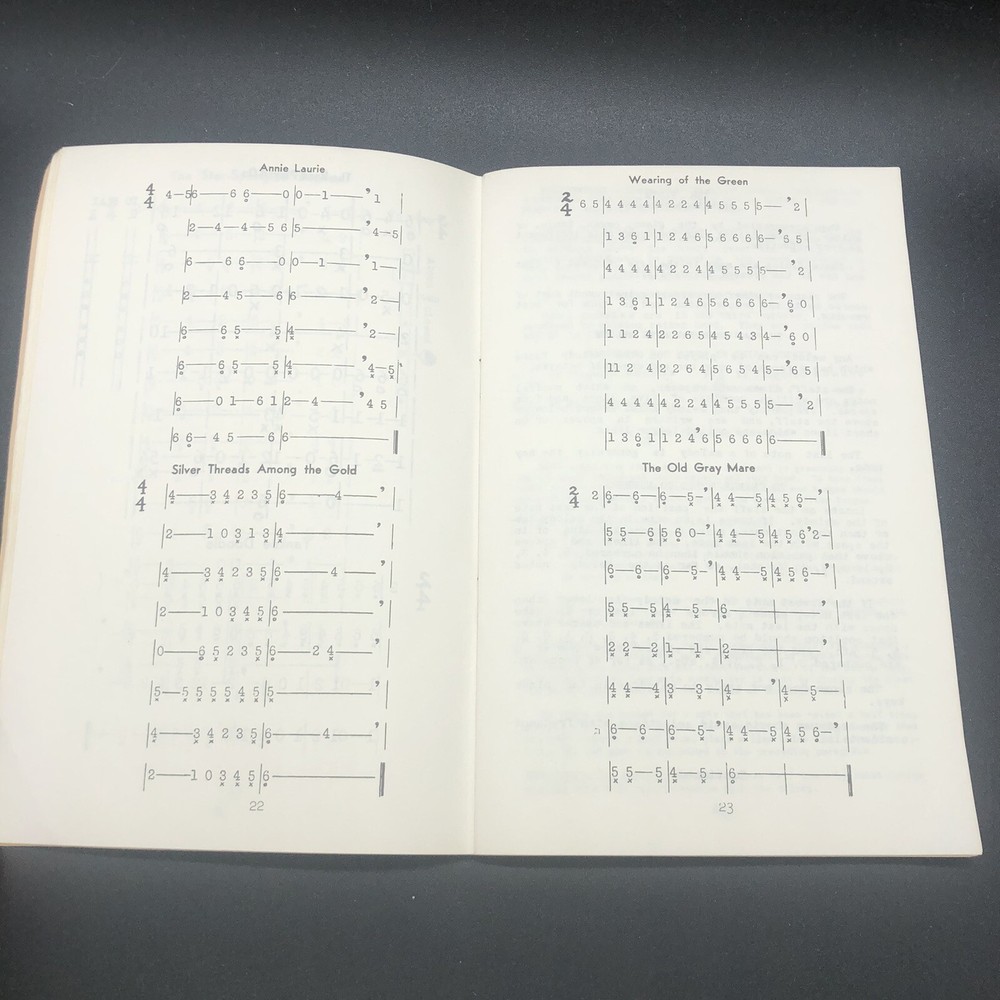 Annie Laurie
4/4 4—5|6——6 6——0|0—1——’1 |
|2—4—4—5 6|5————’4—5|
|6——6 6——0|0—1——’1—|
|2——4 5——6|6————’2—|
|6——6 5——5|4————’2—|
|6——6 5——5|4————’4—5|
|6——0 1—6 1|2—4——’4 5|
|6 6—4 5——6|6————‖
Silver Threads Among the Gold
4/4 |4——3 4 2 3 5|6——4——’|
|2——1 0 3 1 3|4————’|
|4——3 4 2 3 5|6——4——’|
|2——1 0 3 4 5|6————’|
|0——6 5 2 3 5|6——2 4——’|
|5—5 5 5 5 4 5|5————’|
|4——3 4 2 3 5|6——4——’|
|2——1 0 3 4 5|6————‖
22
Wearing of the Green
2/4 6 5|4 4 4 4|4 2 2 4|4 5 5 5|5—’2|
|1 3 6 1|1 2 4 6|5 6 6 6|6—’6 5|
|4 4 4 4|4 2 2 4|4 5 5 5|5—’2|
|1 3 6 1|1 2 4 6|5 6 6 6|6—’6 0|
|1 1 2 4|2 2 6 5|4 5 4 3|4—’6 0|
|11 2 4|2 2 6 4|5 6 5 4|5—’6 5|
|4 4 4 4|4 2 2 4|4 5 5 5|5—’2|
|1 3 6 1|1 2 4’6|5 6 6 6|6——‖
The Old Gray Mare
2/4 2|6—6—|6—5—’|4 4—5|4 5 6—’|
|5 5—6|5 6 0—’|4 4—5|4 5 6’2—|
|6—6—|6—5—’|4 4—5|4 5 6—’|
|5 5—5|4—5—|6——|——’|
|2 2—2|1—1—|2——|——’|
|4 4—4|3—3—|4——’|4—5—|
|6—6—|6—5—’|4 4—5|4 5 6—’|
|5 5—5|4—5—|6——|——‖
23